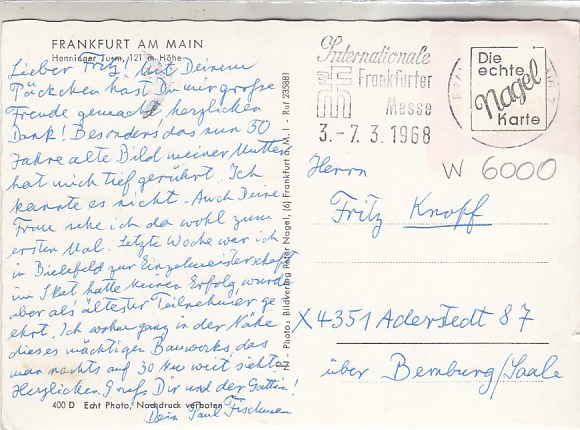 FRANKFURT AM MAIN
Henninger Turm, 121 m Höhe
Lieber Fritz! Mit Deinem
Päckchen hast Du mir große
Freude gemacht, herzlichen
Dank! Besonders das nun 50
Jahre alte Bild meiner Mutter
hat mich tief gerührt. Ich
kannte es nicht. Auch Deine
Frau sehe ich da wohl zum
ersten Mal. Letzte Woche war ich
in Bielefeld zur Einzelmeisterschaft
im Skat hatte keinen Erfolg, wurde
aber als ältester Teilnehmer ge
ehrt. Ich wohne ganz in der Nähe
dieses mächtigen Bauwerks, das
man nachts auf 30 km weit sieht.
Herzlichen Gruß Dir und der Gattin!
Dein Paul
400 D Echt Photo, Nachdruck verboten
PN - Photo: Bildverlag Peter Nagel, (6) Frankfurt a. M. 1 - Ruf 235881
Internationale
Frankfurter
Messe
3.-7.3.1968
Die
echte
Nagel
Karte
W 6000
Herrn
Fritz Knopf
X4351 Aderstedt 87
über Bernburg/Saale